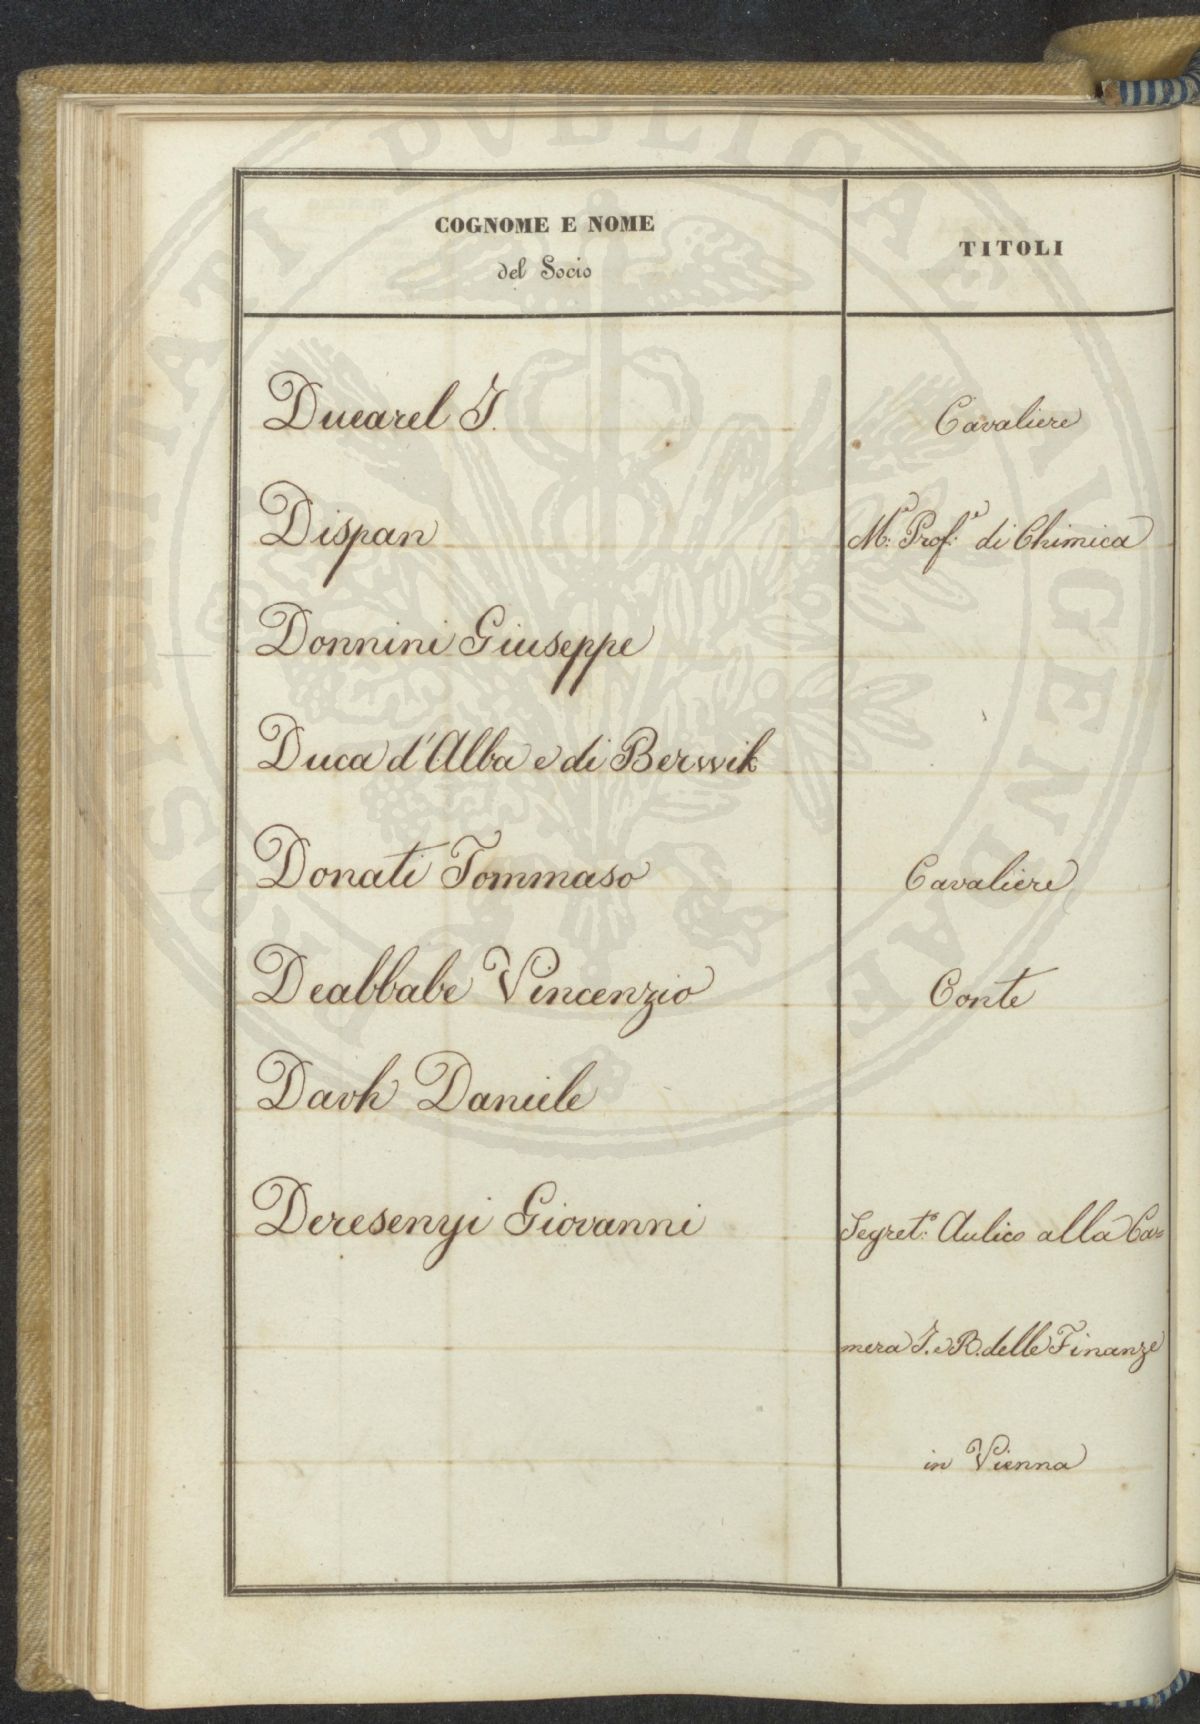 COGNOME E NOME
del Socio
TITOLI
Ducarel J. Cavaliere
Dispan M.r Prof.r di Chimica
Donnini Giuseppe
Duca d'Alba e di Berwik
Donati Tommaso Cavaliere
Deabbabe Vincenzio Conte
Davh Daniele
Deresenyi Giovanni Segret.o Aulico alla Ca=
mera I. e R. delle Finanze
in Vienna
PROSPERITATI PVBLICAE AVGENDAE